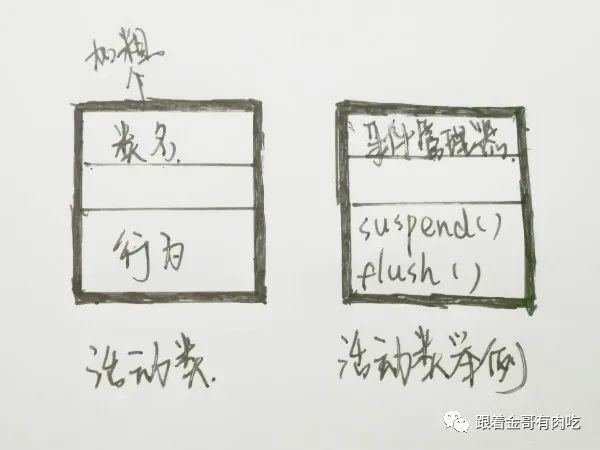 加粗
类名
行为
活动类
事件管理器
suspend()
flush()
活动类举例
跟着金哥有肉吃